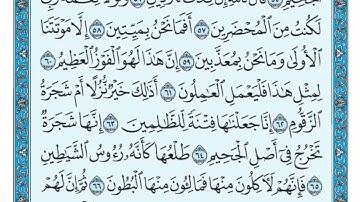 لَكُنتُ مِنَ ٱلْمُحْضَرِينَ ٥٧ أَفَمَا نَحْنُ بِمَيِّتِينَ ٥٨ إِلَّا مَوْتَتَنَا
ٱلْأُولَىٰ وَمَا نَحْنُ بِمُعَذَّبِينَ ٥٩ إِنَّ هَٰذَا لَهُوَ ٱلْفَوْزُ ٱلْعَظِيمُ ٦٠
لِمِثْلِ هَٰذَا فَلْيَعْمَلِ ٱلْعَٰمِلُونَ ٦١ أَذَٰلِكَ خَيْرٌ نُّزُلًا أَمْ شَجَرَةُ
ٱلزَّقُّومِ ٦٢ إِنَّا جَعَلْنَٰهَا فِتْنَةً لِّلظَّٰلِمِينَ ٦٣ إِنَّهَا شَجَرَةٌ
تَخْرُجُ فِىٓ أَصْلِ ٱلْجَحِيمِ ٦٤ طَلْعُهَا كَأَنَّهُۥ رُءُوسُ ٱلشَّيَٰطِينِ
٦٥ فَإِنَّهُمْ لَءَاكِلُونَ مِنْهَا فَمَالِـُٔونَ مِنْهَا ٱلْبُطُونَ ٦٦ ثُمَّ إِنَّ لَهُمْ